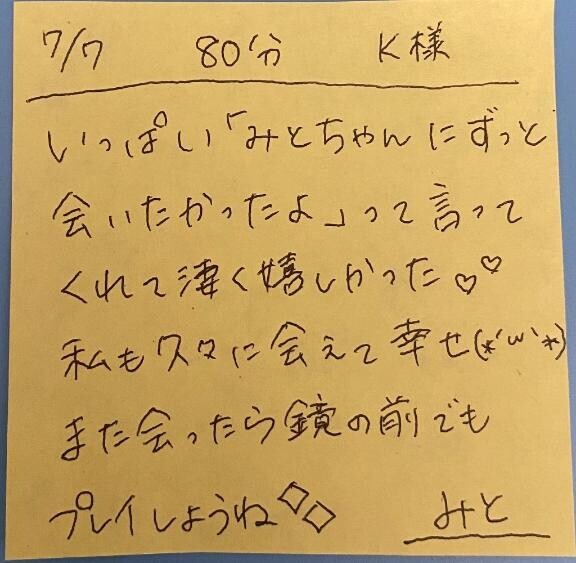 7/7 80分 K様
いっぱい「みとちゃんにずっと
会いたかったよ」って言って
くれて凄く嬉しかった♡♡
私も久々に会えて幸せ(*´ω`*)
また会ったら鏡の前でも
プレイしようね◇◇ みと